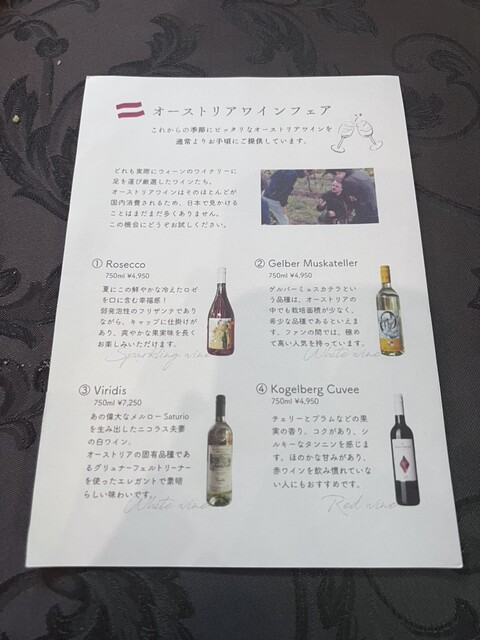 オーストリアワインフェア
これからの季節にピッタリなオーストリアワインを
通常よりお手頃にご提供しています。
どれも実際にウィーンのワイナリーに
足を運び厳選したワインたち。
オーストリアワインはそのほとんどが
国内消費されるため、日本で見かける
ことはまだまだ多くありません。
この機会にどうぞお試しください。
① Rosecco
750ml ¥4,950
夏にこの鮮やかな冷えたロゼ
を口に含む幸福感!
弱発泡性のフリザンテであり
ながら、キャップに仕掛けが
あり、爽やかな果実味を長く
お楽しみいただけます。
Sparkling wine
② Gelber Muskateller
750ml ¥4,950
ゲルバー・ミュスカテラとい
う品種は、オーストリアの
中でも栽培面積が少なく、
希少な品種であるといえま
す。ファンの間では、極め
て高い人気を持っています。
White wine
③ Viridis
750ml ¥7,250
あの偉大なメルローSaturio
を生み出したニコラス夫妻
の白ワイン。
オーストリアの固有品種であ
るグリューナーフェルトリーナー
を使ったエレガントで素晴
らしい味わいです。
White wine
④ Kogelberg Cuvee
750ml ¥4,950
チェリーとプラムなどの果
実の香り。コクがあり、シ
ルキーなタンニンを感じま
す。ほのかな甘みがあり、
赤ワインを飲み慣れていな
い人にもおすすめです。
Red wine